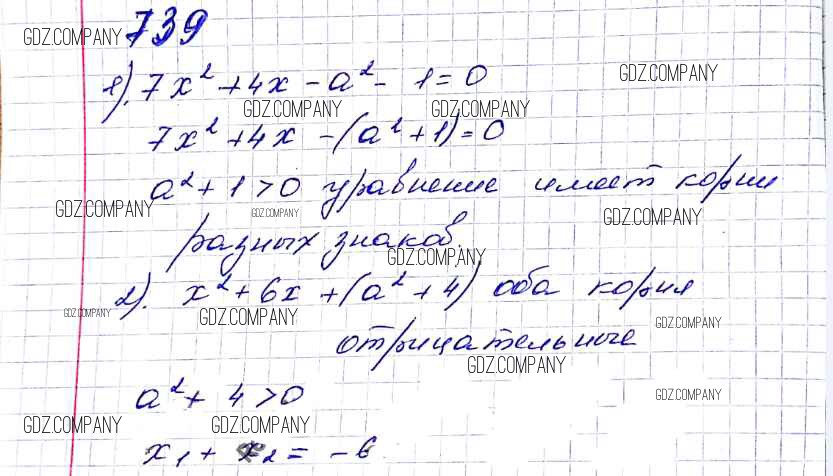 739
GDZ.COMPANY
1). 7x² + 4x - a² - 1 = 0
GDZ.COMPANY
GDZ.COMPANY GDZ.COMPANY
7x² + 4x - (a² + 1) = 0
a² + 1 > 0 уравнение имеет корни
GDZ.COMPANY GDZ.COMPANY GDZ.COMPANY
разных знаков.
GDZ.COMPANY
2). x² + 6x + (a² + 4) оба корня
GDZ.COMPANY GDZ.COMPANY GDZ.COMPANY
отрицательные
GDZ.COMPANY
a² + 4 > 0
GDZ.COMPANY
GDZ.COMPANY GDZ.COMPANY
x₁ + x₂ = -6